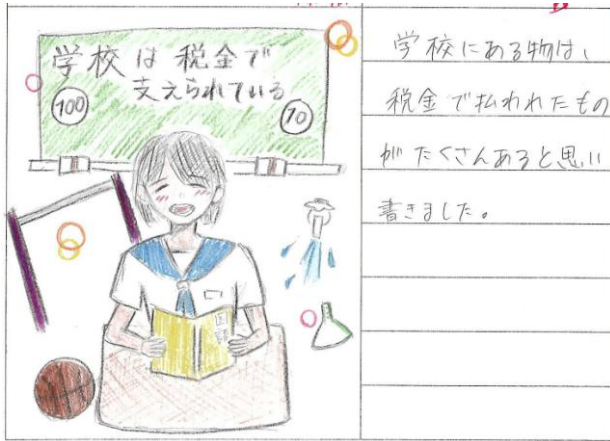 学校は税金で
支えられている
100
10
学校にある物は、
税金で払われたもの
がたくさんあると思い
書きました。